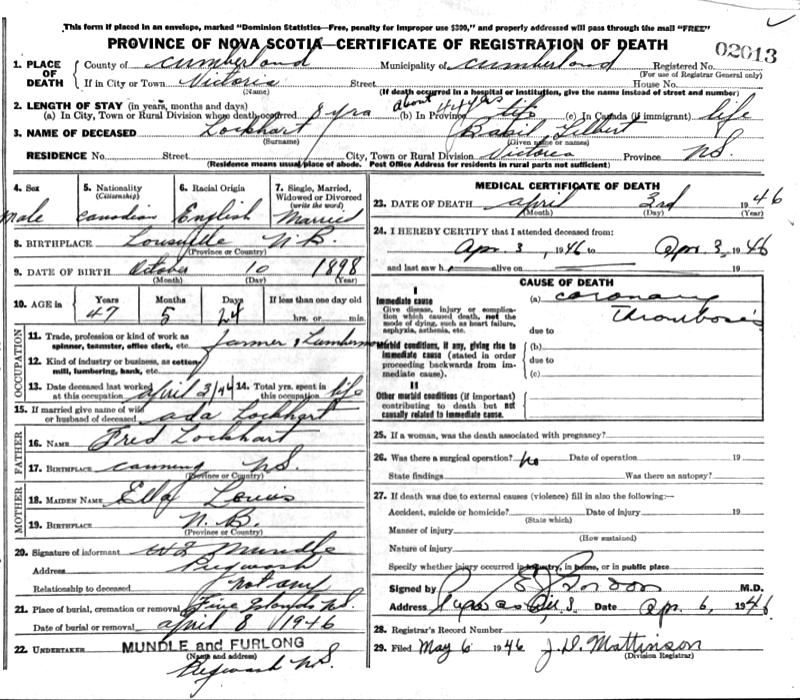 This form if placed in an envelope, marked "Dominion Statistics—Free, penalty for improper use $300," and properly addressed will pass through the mail "FREE"
PROVINCE OF NOVA SCOTIA—CERTIFICATE OF REGISTRATION OF DEATH
02013
1. PLACE OF DEATH
County of Cumberland Municipality of Cumberland Registered No.
(For use of Registrar General only)
If in City or Town Victoria Street House No.
(Name) (If death occurred in a hospital or institution, give the name instead of street and number)
2. LENGTH OF STAY (in years, months and days) about 44 yrs
(a) In City, Town or Rural Division where death occurred 8 yrs (b) In Province life (c) In Canada (if immigrant) life
3. NAME OF DECEASED Lockhart Basil Gilbert
(Surname) (Given name or names)
RESIDENCE No. Street City, Town or Rural Division Victoria Province N.S.
(Residence means usual place of abode. Post Office Address for residents in rural parts not sufficient)
4. Sex male
5. Nationality (Citizenship) Canadian
6. Racial Origin English
7. Single, Married, Widowed or Divorced (write the word) Married
8. BIRTHPLACE Louisville N.B.
(Province or Country)
9. DATE OF BIRTH October 10 1898
(Month) (Day) (Year)
10. AGE in Years 47 Months 5 Days 24 If less than one day old hrs. or min.
OCCUPATION
11. Trade, profession or kind of work as spinner, teamster, office clerk, etc. farmer & Lumberman
12. Kind of industry or business, as cotton mill, lumbering, bank, etc.
13. Date deceased last worked at this occupation April 3/46
14. Total yrs. spent in this occupation life
15. If married give name of wife or husband of deceased Ada Lockhart
FATHER
16. NAME Fred Lockhart
17. BIRTHPLACE Canning N.S.
(Province or Country)
MOTHER
18. MAIDEN NAME Ella
19. BIRTHPLACE N.B.
(Province or Country)
20. Signature of informant Mundle
Address Pugwash
Relationship to deceased not any
21. Place of burial, cremation or removal Five Islands N.S.
Date of burial or removal April 8 1946
22. UNDERTAKER MUNDLE and FURLONG
(Name and address)
Pugwash N.S.
MEDICAL CERTIFICATE OF DEATH
23. DATE OF DEATH April 3rd 1946
(Month) (Day) (Year)
24. I HEREBY CERTIFY that I attended deceased from:
Apr. 3, 1946 to Apr. 3, 1946
and last saw h alive on 19
CAUSE OF DEATH
I
Immediate cause (a) Coronary Thrombosis
Give disease, injury or complication which caused death, not the mode of dying, such as heart failure, asphyxia, asthenia, etc.
due to
Morbid conditions, if any, giving rise to immediate cause (stated in order proceeding backwards from immediate cause).
(b)
due to
(c)
II
Other morbid conditions (if important) contributing to death but not causally related to immediate cause.
25. If a woman, was the death associated with pregnancy?
26. Was there a surgical operation? no Date of operation 19
State findings Was there an autopsy?
27. If death was due to external causes (violence) fill in also the following:—
Accident, suicide or homicide? Date of injury 19
(State which)
Manner of injury
(How sustained)
Nature of injury
Specify whether injury occurred in industry, in home, or in public place
Signed by M.D.
Address Date Apr. 6, 1946
28. Registrar's Record Number
29. Filed May 6 1946 J. D. Mattinson
(Division Registrar)